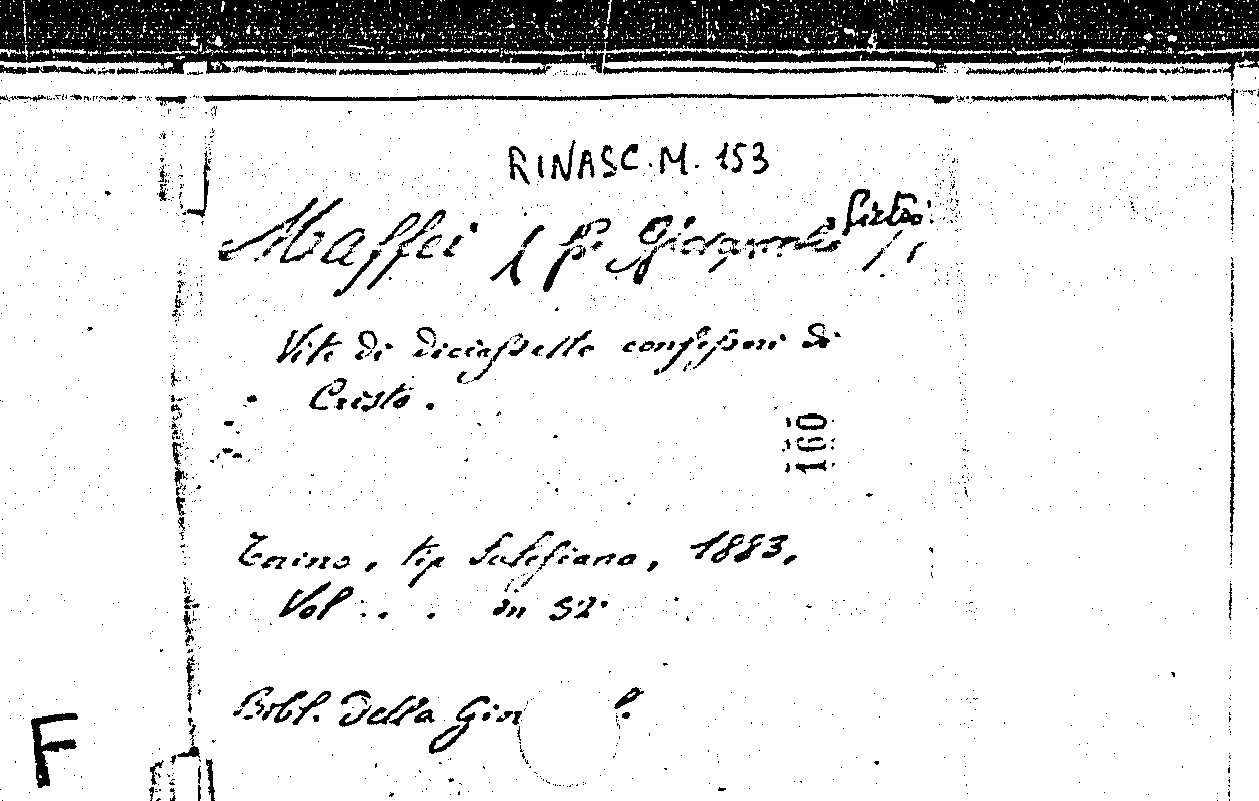 RINASC. M. 153
Maffei (P. Giovanni Pietro).
Vite di diciassette confessori di
Cristo.
160
Torino, tip Salesiana, 1883.
Vol . . . in 32°
Bibl. della
F